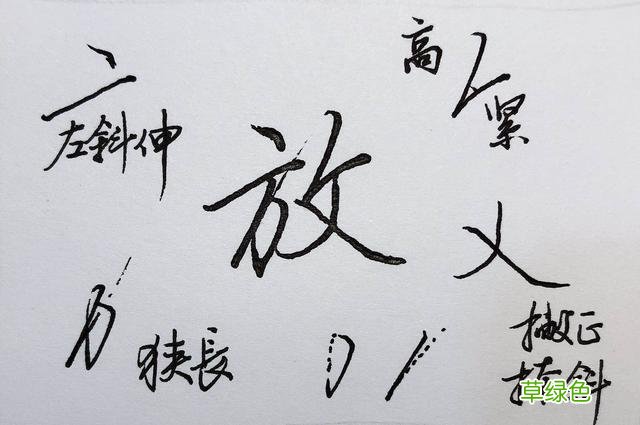 高
紧
左斜伸
放
狭長
撇正
捺斜
草绿色